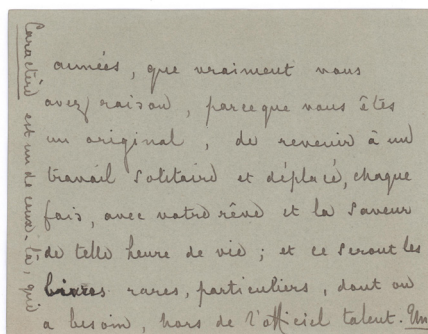 années, que vraiment vous
avez raison, parce que vous êtes
un original, de revenir à un
travail solitaire et déplacé, chaque
fois, avec votre rêve et la saveur
de telle heure de vie ; et ce seront les
livres rares, particuliers, dont on
a besoin, hors de l'officiel talent. Un
Caractère est un de ceux-là, qui